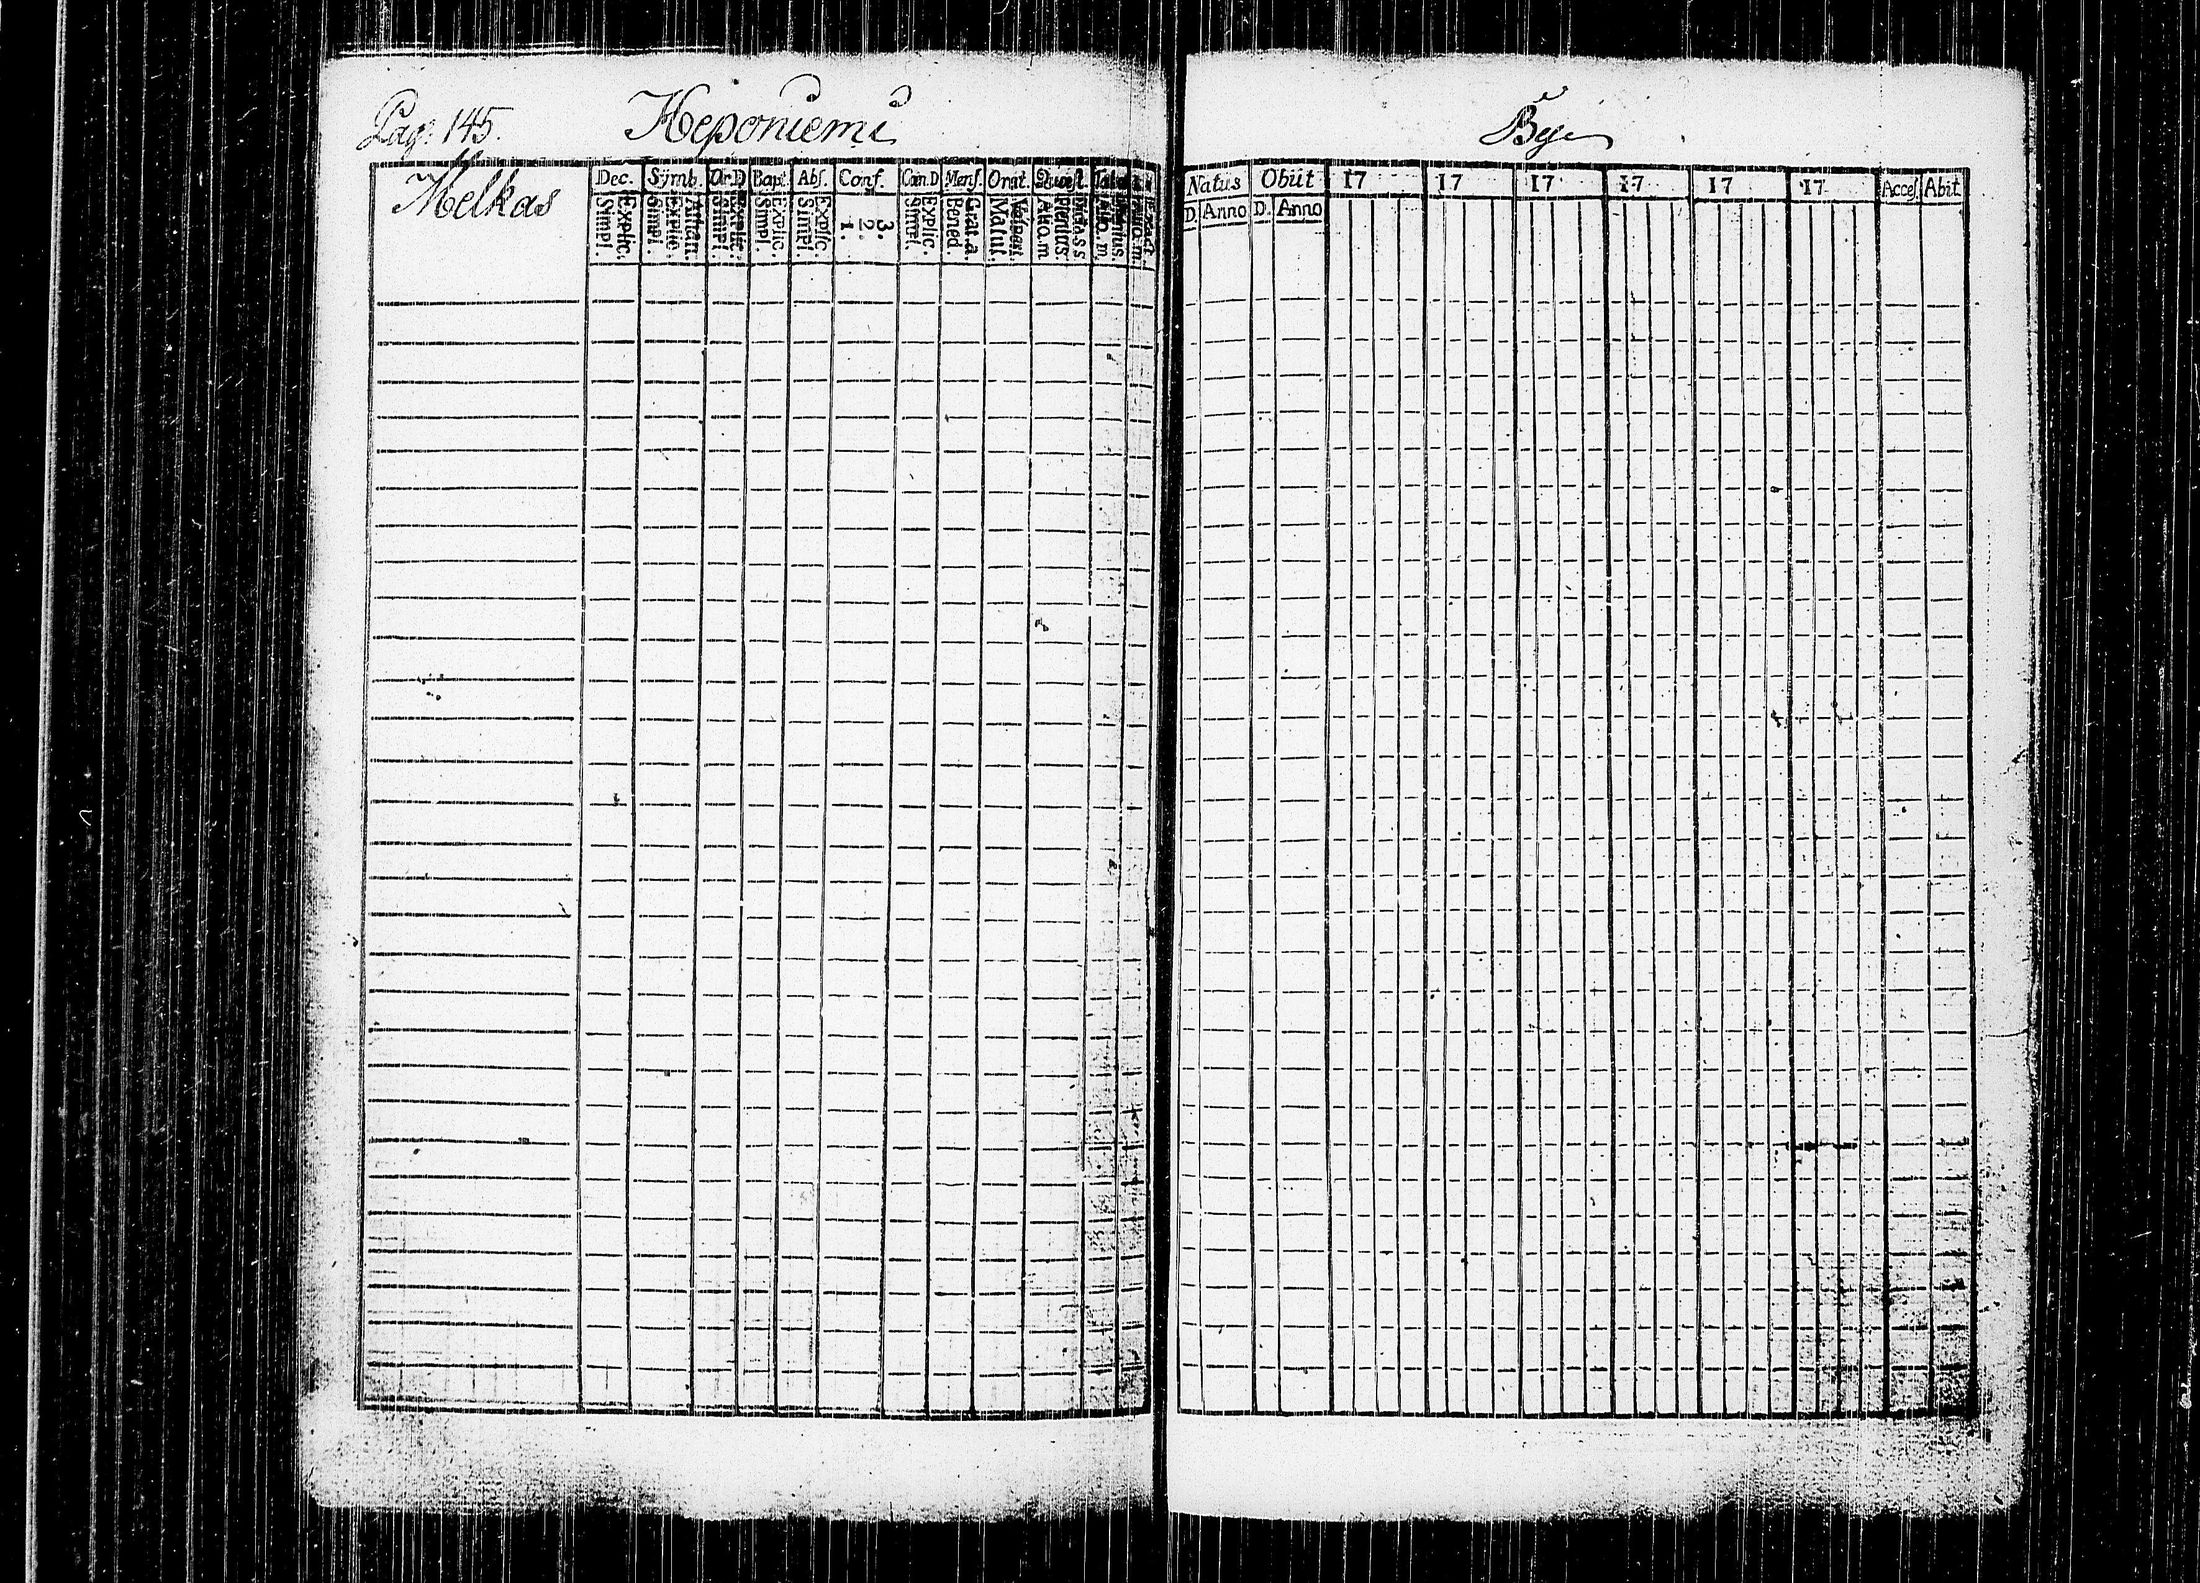 Pag. 145. Heponiemi
Melkas
Dec. Symb. Or.D Bapt. Abs. Conf. Cœn.D Mens. Orat. Quæst.
Simpl. Explic. Simpl. Explic. Athan. Simpl. Explic. Simpl. Explic. Simpl. Explic. 1. 2. 3. Simpl. Explic. Bened. Grat.a. Matut. Vesper. Ali.o.m Plenius.
By
Natus Obiit 17 17 17 17 17 17 Acces. Abit
D. Anno D. Anno